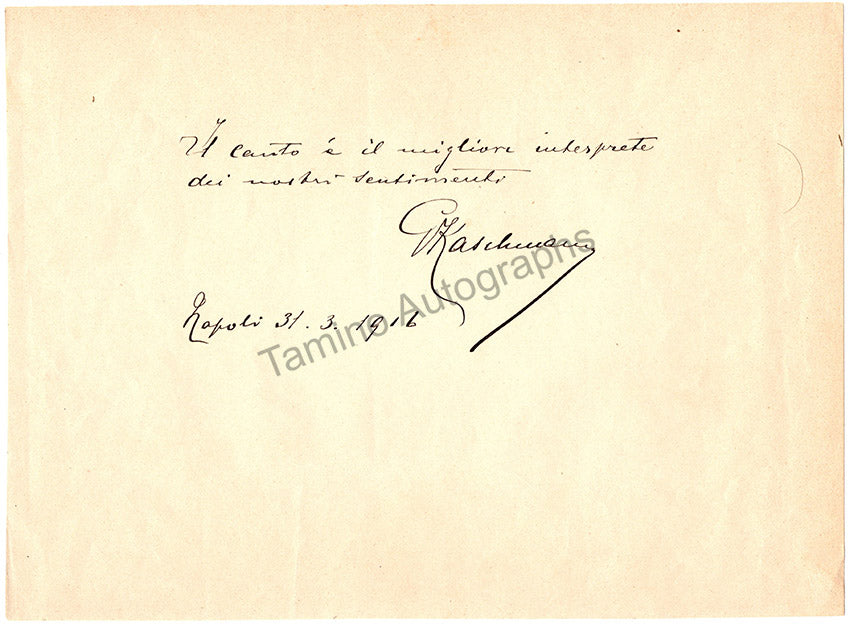 Il canto è il migliore interprete
dei nostri sentimenti
GKaschmann
Napoli 31. 3. 1916
Tamino Autographs